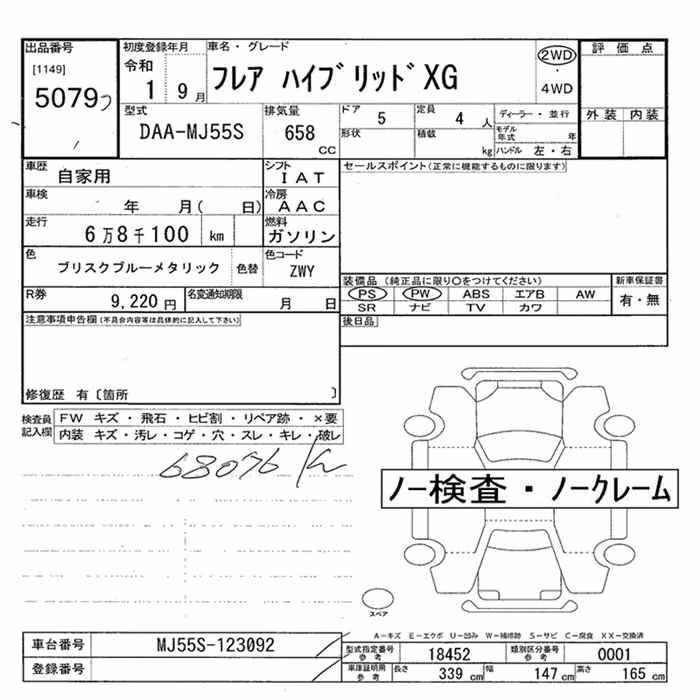 出品番号 初度登録年月 車名・グレード 評価点
[1149] 令和 2WD
5079 1 9月 フレア ハイブリッドXG ・
4WD
型式 排気量 ドア 5 定員 4人 ディーラー・並行 外装 内装
DAA-MJ55S 658 CC 形状 積載 kg モデル年式 年
ハンドル 左・右
車歴 自家用 シフト IAT セールスポイント(正常に機能するものに限ります)
車検 年 月( 日) 冷房 AAC
走行 6万8千100 km 燃料 ガソリン
色 ブリスクブルーメタリック 色替 色コード ZWY
装備品(純正品に限り○をつけてください) 新車保証書
R券 9,220円 名変通知期限 月 日 PS PW ABS エアB AW 有・無
SR ナビ TV カワ
注意事項申告欄(不具合内容等は具体的に記入して下さい) 後日品
修復歴 有〔箇所 〕
検査員記入欄 FW キズ・飛石・ヒビ割・リペア跡・×要
内装 キズ・汚レ・コゲ・穴・スレ・キレ・破レ
68076 km
ノー検査・ノークレーム
スペア
A-キズ E-エクボ U-凹み W-補修跡 S-サビ C-腐食 XX-交換済
車台番号 MJ55S-123092 型式指定番号 参考 18452 類別区分番号 参考 0001
登録番号 車庫証明用 参考 長さ 339 cm 幅 147 cm 高さ 165 cm